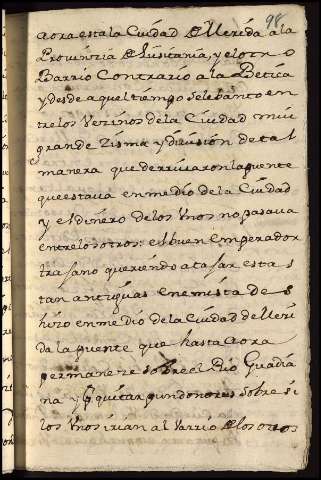 98
aora esta la Ciudad de Merida a la
Provinçia de Lusitania, y el otro
Barrio Contrario a la Betica
y desde aquel tiempo se lebanto en
tre los Veçinos de la Ciudad mui
grande Zisma y division de tal
manera que derrivaron la puente
que estava en medio de la Ciudad
y el dinero de los Vnos no pasava
entre los otros: el buen emperador
trajano queriendo atajar esta s
tan antiguas enemistades
hizo en medio de la Ciudad de Meri
da la puente que hasta aora
permaneze sobre el Rio Guadia
na y por quitar pundonores sobre si
los Vnos ivan al Varrio de los otros